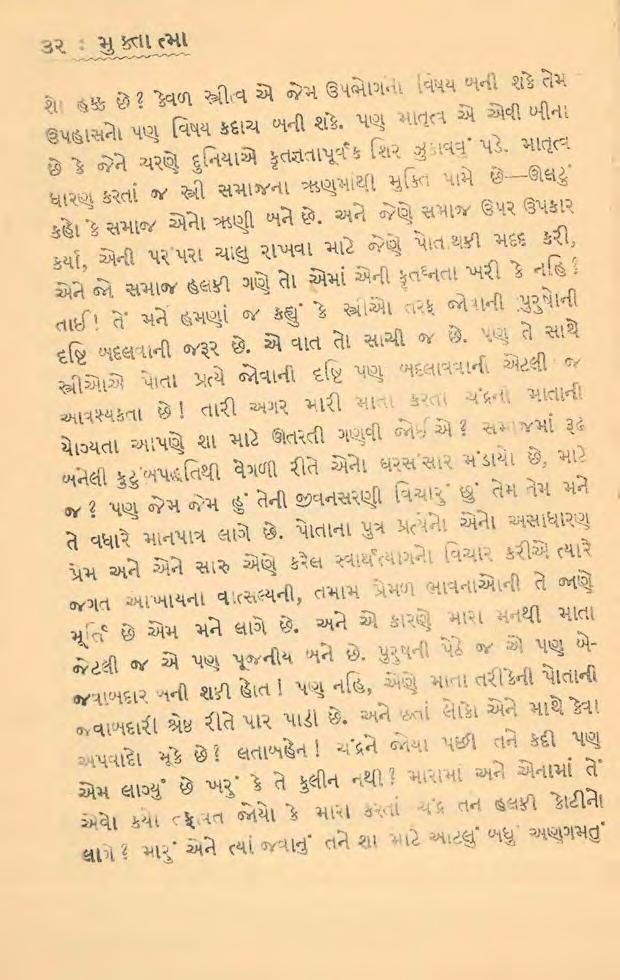 ૩૨ : મુક્તાત્મા
શો હક્ક છે? કેવળ સ્ત્રીત્વ એ જેમ ઉપભોગનો વિષય બની શકે તેમ
ઉપહાસનો પણ વિષય કદાચ બની શકે. પણ માતૃત્વ એ એવી બીના
છે કે જેને ચરણે દુનિયાએ કૃતજ્ઞતાપૂર્વક શિર ઝુકાવવું પડે. માતૃત્વ
ધારણ કરતાં જ સ્ત્રી સમાજના ઋણમાંથી મુક્તિ પામે છે—ઊલટું
કહો કે સમાજ એનો ઋણી બને છે. અને જેણે સમાજ ઉપર ઉપકાર
કર્યા, એની પરંપરા ચાલુ રાખવા માટે જેણે પોતાથકી મદદ કરી,
એને જો સમાજ હલકી ગણે તો એમાં એની કૃતઘ્નતા ખરી કે નહિ?
તાઈ! તેં મને હમણાં જ કહ્યું કે સ્ત્રીઓ તરફ જોવાની પુરુષોની
દૃષ્ટિ બદલવાની જરૂર છે. એ વાત તો સાચી જ છે. પણ તે સાથે
સ્ત્રીઓએ પોતા પ્રત્યે જોવાની દૃષ્ટિ પણ બદલાવવાની એટલી જ
આવશ્યકતા છે! તારી અગર મારી માતા કરતાં ચંદ્રની માતાની
યોગ્યતા આપણે શા માટે ઊતરતી ગણવી જોઈએ? સમાજમાં રૂઢ
બનેલી કુટુંબપદ્ધતિથી વેગળી રીતે એનો ઘરસંસાર મંડાયો છે, માટે
જ? પણ જેમ જેમ હું તેની જીવનસરણી વિચારું છું તેમ તેમ મને
તે વધારે માનપાત્ર લાગે છે. પોતાના પુત્ર પ્રત્યેનો એનો અસાધારણ
પ્રેમ અને એને સારુ એણે કરેલ સ્વાર્થત્યાગનો વિચાર કરીએ ત્યારે
જગત આખાયના વાત્સલ્યની, તમામ પ્રેમળ ભાવનાઓની તે જાણે
મૂર્તિ છે એમ મને લાગે છે. અને એ કારણે મારા મનથી માતા
જેટલી જ એ પણ પૂજનીય બને છે. પુરુષની પેઠે જ એ પણ બે-
જવાબદાર બની શકી હોત! પણ નહિ, એણે માતા તરીકેની પોતાની
જવાબદારી શ્રેષ્ઠ રીતે પાર પાડી છે. અને છતાં લોકો એને માથે કેવા
અપવાદો મૂકે છે? લતાબહેન! ચંદ્રને જોયા પછી તને કદી પણ
એમ લાગ્યું છે ખરું કે તે કુલીન નથી? મારામાં અને એનામાં તેં
એવો કયો તફાવત જોયો કે મારા કરતાં ચંદ્ર તને હલકી કોટીનો
લાગે? મારું એને ત્યાં જવાનું તને શા માટે આટલું બધું અણગમતું